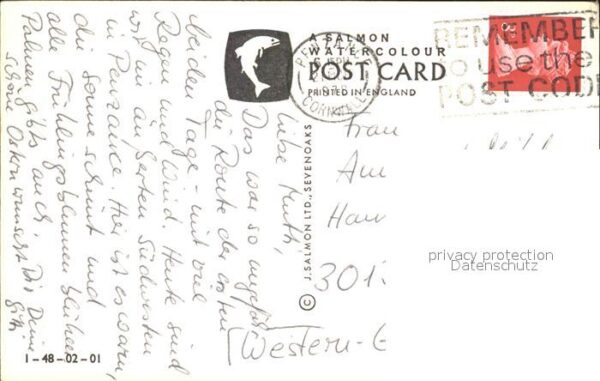 A SALMON
WATERCOLOUR
POST CARD
PRINTED IN ENGLAND
CORNWALL
REMEMBER
to use the
POST CODE
Liebe Ruth,
Das war so ungefähr
die Route der ersten
beiden Tage - mit viel
Regen und Wind. Heute sind
wir im äußersten Südwesten
in Penzance. Hier ist es warm,
die Sonne scheint und
alle Frühlingsblumen blühen.
Palmen gibts auch.
Schöne Ostern wünscht Dir Deine
© J. SALMON LTD., SEVENOAKS
Frau
Am
Han
301
Western-G
privacy protection
Datenschutz
1-48-02-01